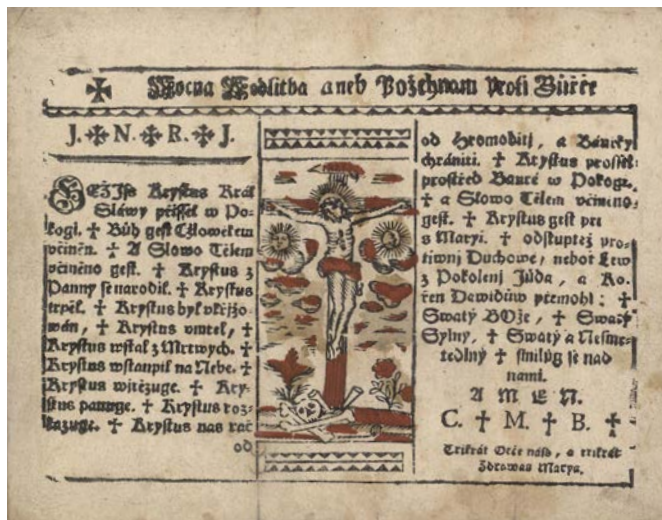 ✠ Mocná Modlitba aneb Požehnani Proti Bauřce
J. ✠ N. ✠ R. ✠ J.
EŽJss Krystus Král
Sláwy přissel w Po-
kogi. † Bůh gest Cžlowěkem
včiněn. † A Slowo Tělem
včiněno gest. † Krystus z
Panny se narodil. † Krystus
trpěl. † Krystus byl vkřižo-
wán, † Krystus vmřel, †
Krystus wstal z Mrtwych. †
Krystus wstaupil na Nebe. †
Krystus witězuge. † Kry-
stus panuge. † Krystus roz-
kazuge. † Krystus nás rač
od
od Hromobití, a Bauřky
chrániti. † Krystus prossel
prostřed Bauře w Pokoge.
† a Slowo Tělem včiněno
gest. † Krystus gest při
s Maryi. † odstuptež pro-
tiwnj Duchowe, neboť Lew
z Pokolenj Júda, a Ko-
řen Dawidůw přemohl: †
Swatý BOže, † Swatý
Sylny, † Swatý a Nesmr-
tedlný † smilůg se nad
nami.
A M E N.
C. † M. † B. †
Třikrát Otče náss, a třikrát
Zdrawas Marya.